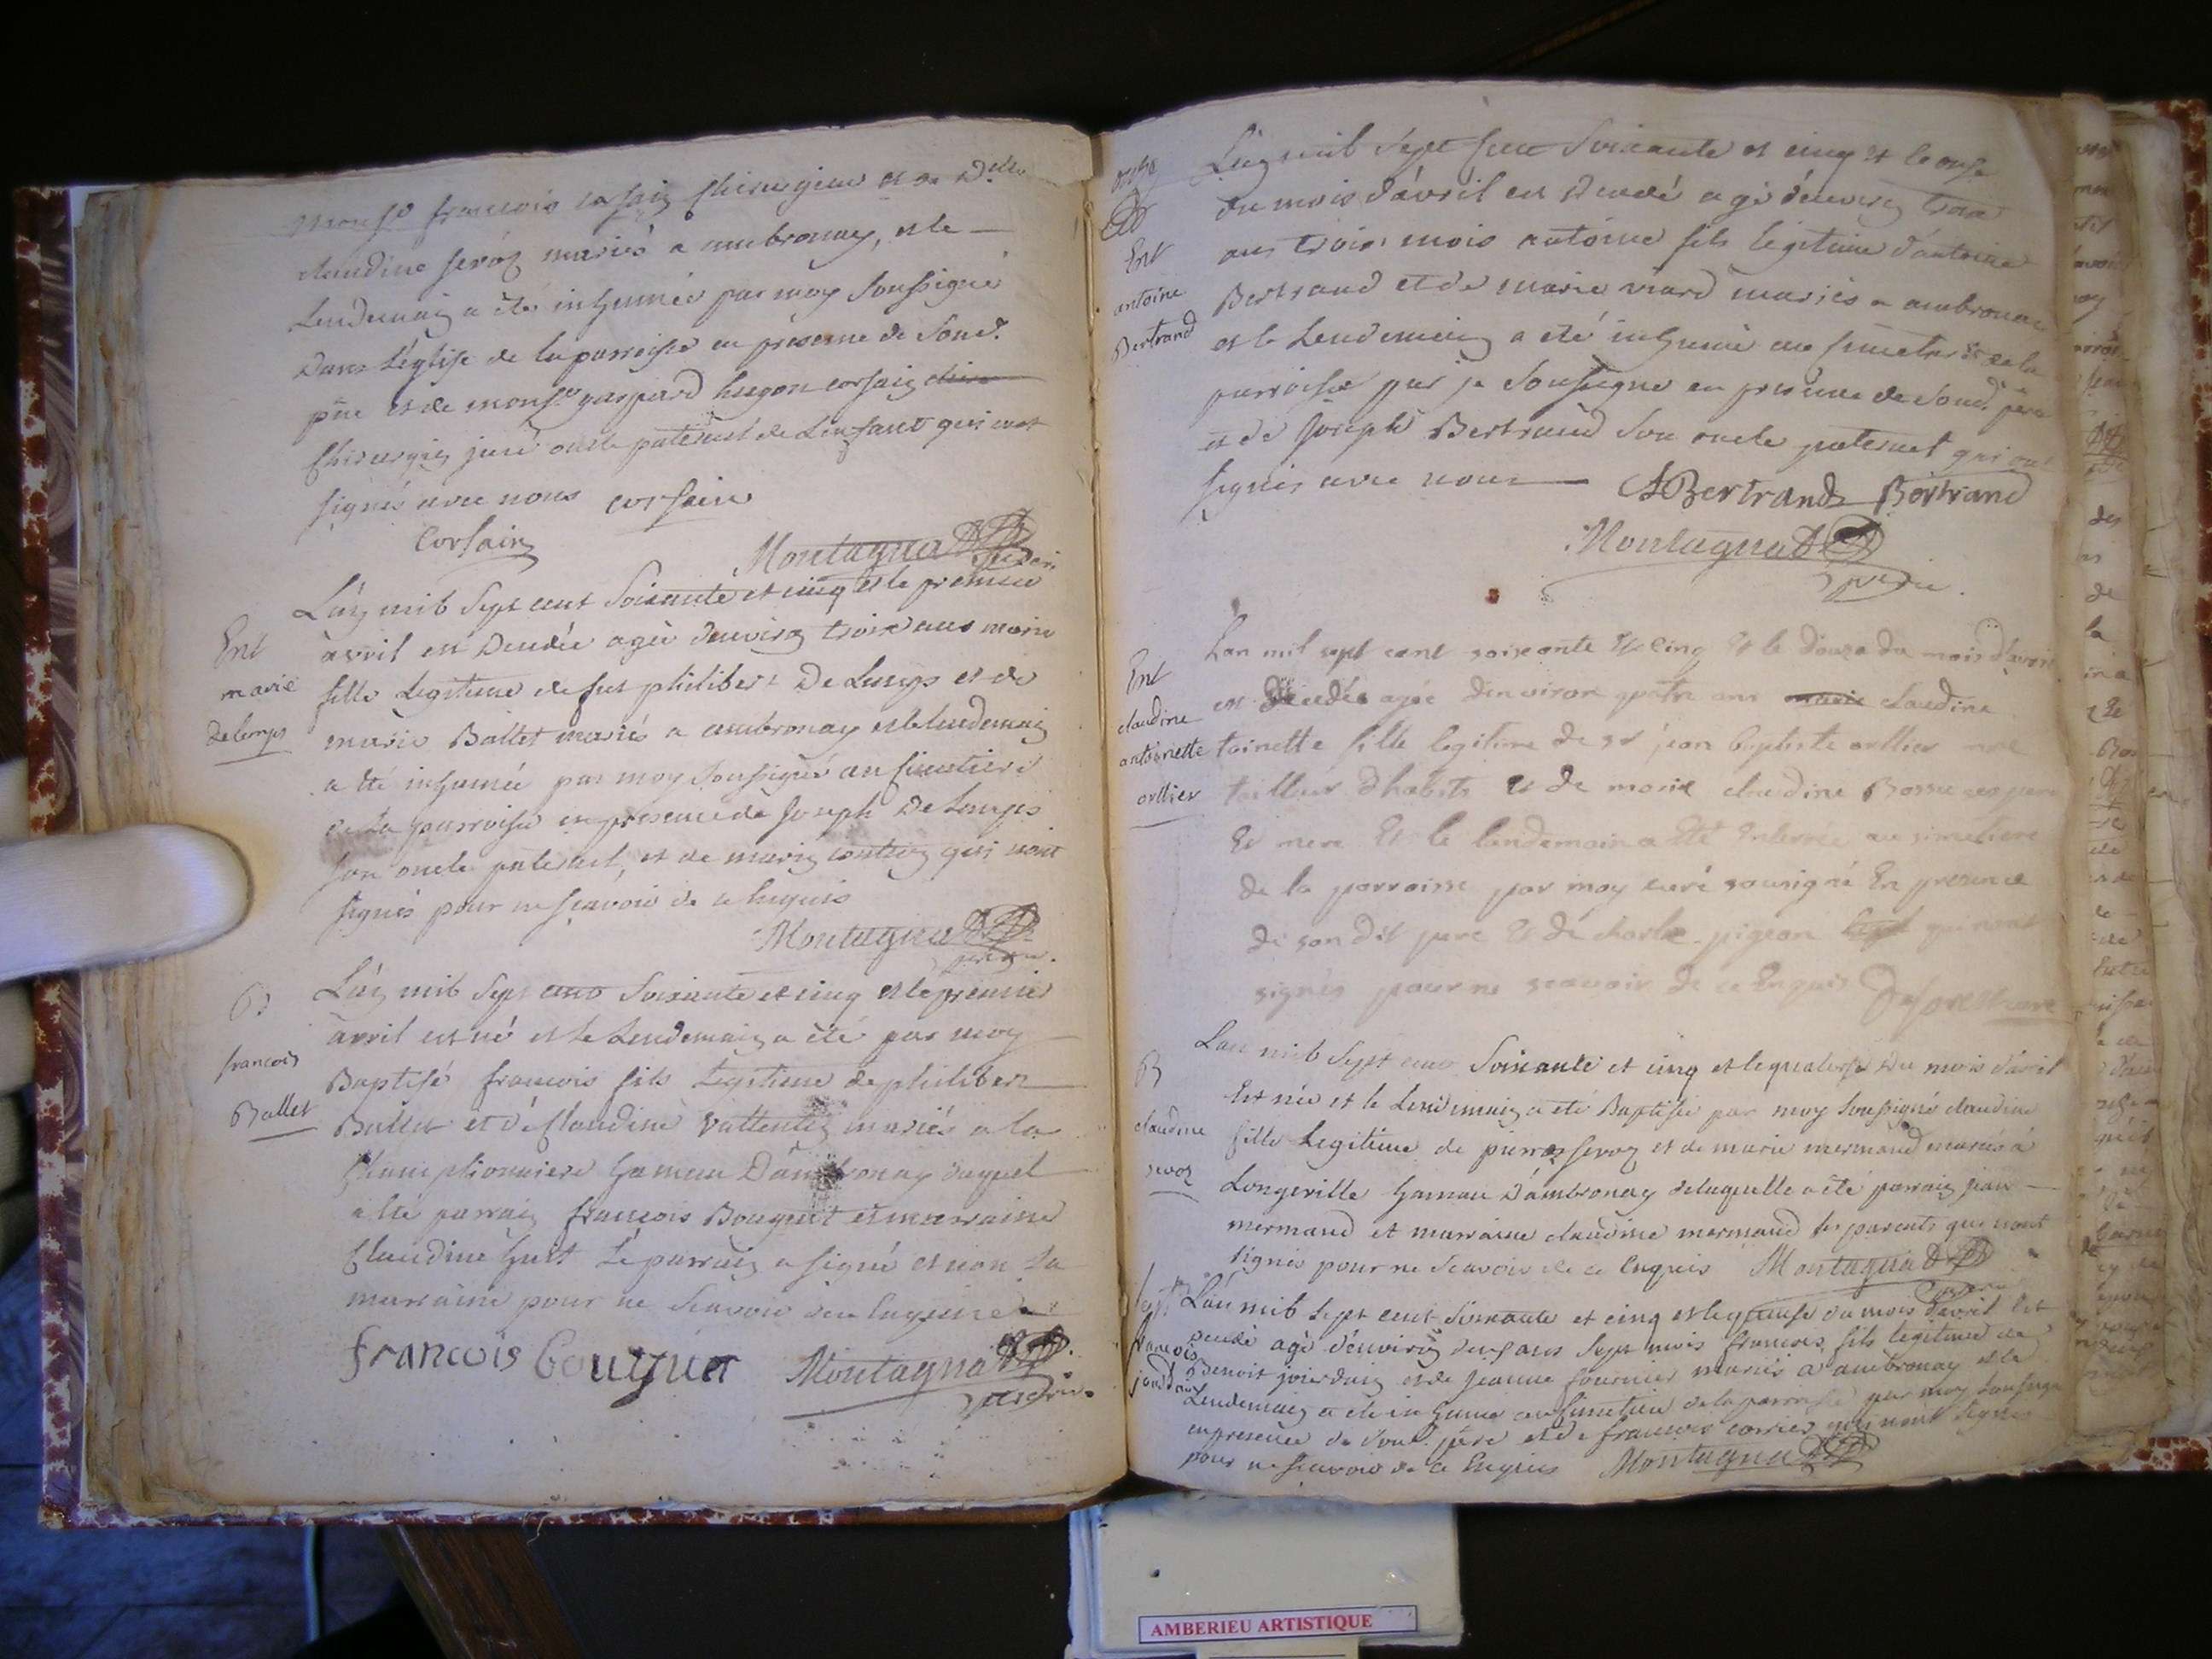 françois corsain chirurgien et de D.elle
claudine servoz mariés a ambronay, et le
Lendemain a été inhumée par moy soussigné
Dans L'église de la parroisse en présence de son d.
père et de mons.r gaspard hugon corsain
Chirurgien juré oncle paternel de L'enfant qui ont
signés avec nous corsain
Corsain
Montagnat
L'an mil sept cent soixante et cinq et le premier
Ent
avril est décédée agée d'environ trois ans moins
marie
fille Legitime de fut philibert De Lemps et de
delemps
marie Ballet mariés a ambronay et le lendemain
a été inhumée par moy soussigné au simetiere
de La parroisse en presence de Joseph De Lemps
son oncle paternel, et de marin qui n'ont
signés pour ne sçavoir de ce enquis
Montagnat
L'an mil sept cent soixante et cinq et le premier
B
avril est né et le Lendemain a été par moy
françois
Baptisé françois fils Legitime de philibert
Ballet
Ballet et de Claudine mariés a la
hameau D'ambronay duquel
a été parrain françois Bouguet et marraine
Claudine huit Le parrain a signé et non la
marraine pour ne sçavoir de ce enquise
françois bouguet Montagnat
L'an mil sept cent soixante et cinq et le onze
du mois d'avril est décédé agé d'environ trois
Ent
ans trois mois antoine fils legitime d'antoine
antoine
Bertrand
Bertrand et de marie viard mariés a ambronay
et le Lendemain a été inhumé au simetiere de la
parroisse par je soussigné en presence de son d. père
et de Joseph Bertrand son oncle paternel qui ont
signés avec nous ABertrand Bertrand
Montagnat
Lan mil sept cent soixante et cinq et le douze du mois d'avril
Ent
est décédée agée denviron quatre ans marie claudine
claudine
antoinette
toinette fille legitime de sr jean baptiste orllier
orllier
tailleur d'habits et de marie claudine Bossu ses pere
et mere Et le lendemain a été enterrée au simetiere
de la parroisse par moy curé sousigné En presence
de son dit pere et de charle pigeon qui n'ont
signés pour ne scavoir de ce Enquis
L'an mil sept cent soixante et cinq et le quatorze du mois d'avril
B
Est née et le Lendemain a été Baptisée par moy soussigné claudine
claudine
servoz
fille Legitime de pierre servoz et de marie mermand mariés à
Longeville hameau D'ambronay de laquelle a été parrain jean
mermand et marraine claudine mermand ses parents qui n'ont
signés pour ne scavoir de ce enquis Montagnat
L'an mil sept cent soixante et cinq et le quinze du mois d'avril Est
françois
jourdain
décédé agé d'environ deux ans sept mois françois fils legitime de
Benoit jourdain et de jeanne fournier mariés a ambronay et le
Lendemain a été inhumé au simetiere de la parroisse par moy soussigné
en presence de son d. père et de françois carrier qui n'ont signés
pour ne scavoir de ce Enquis Montagnat
AMBERIEU ARTISTIQUE